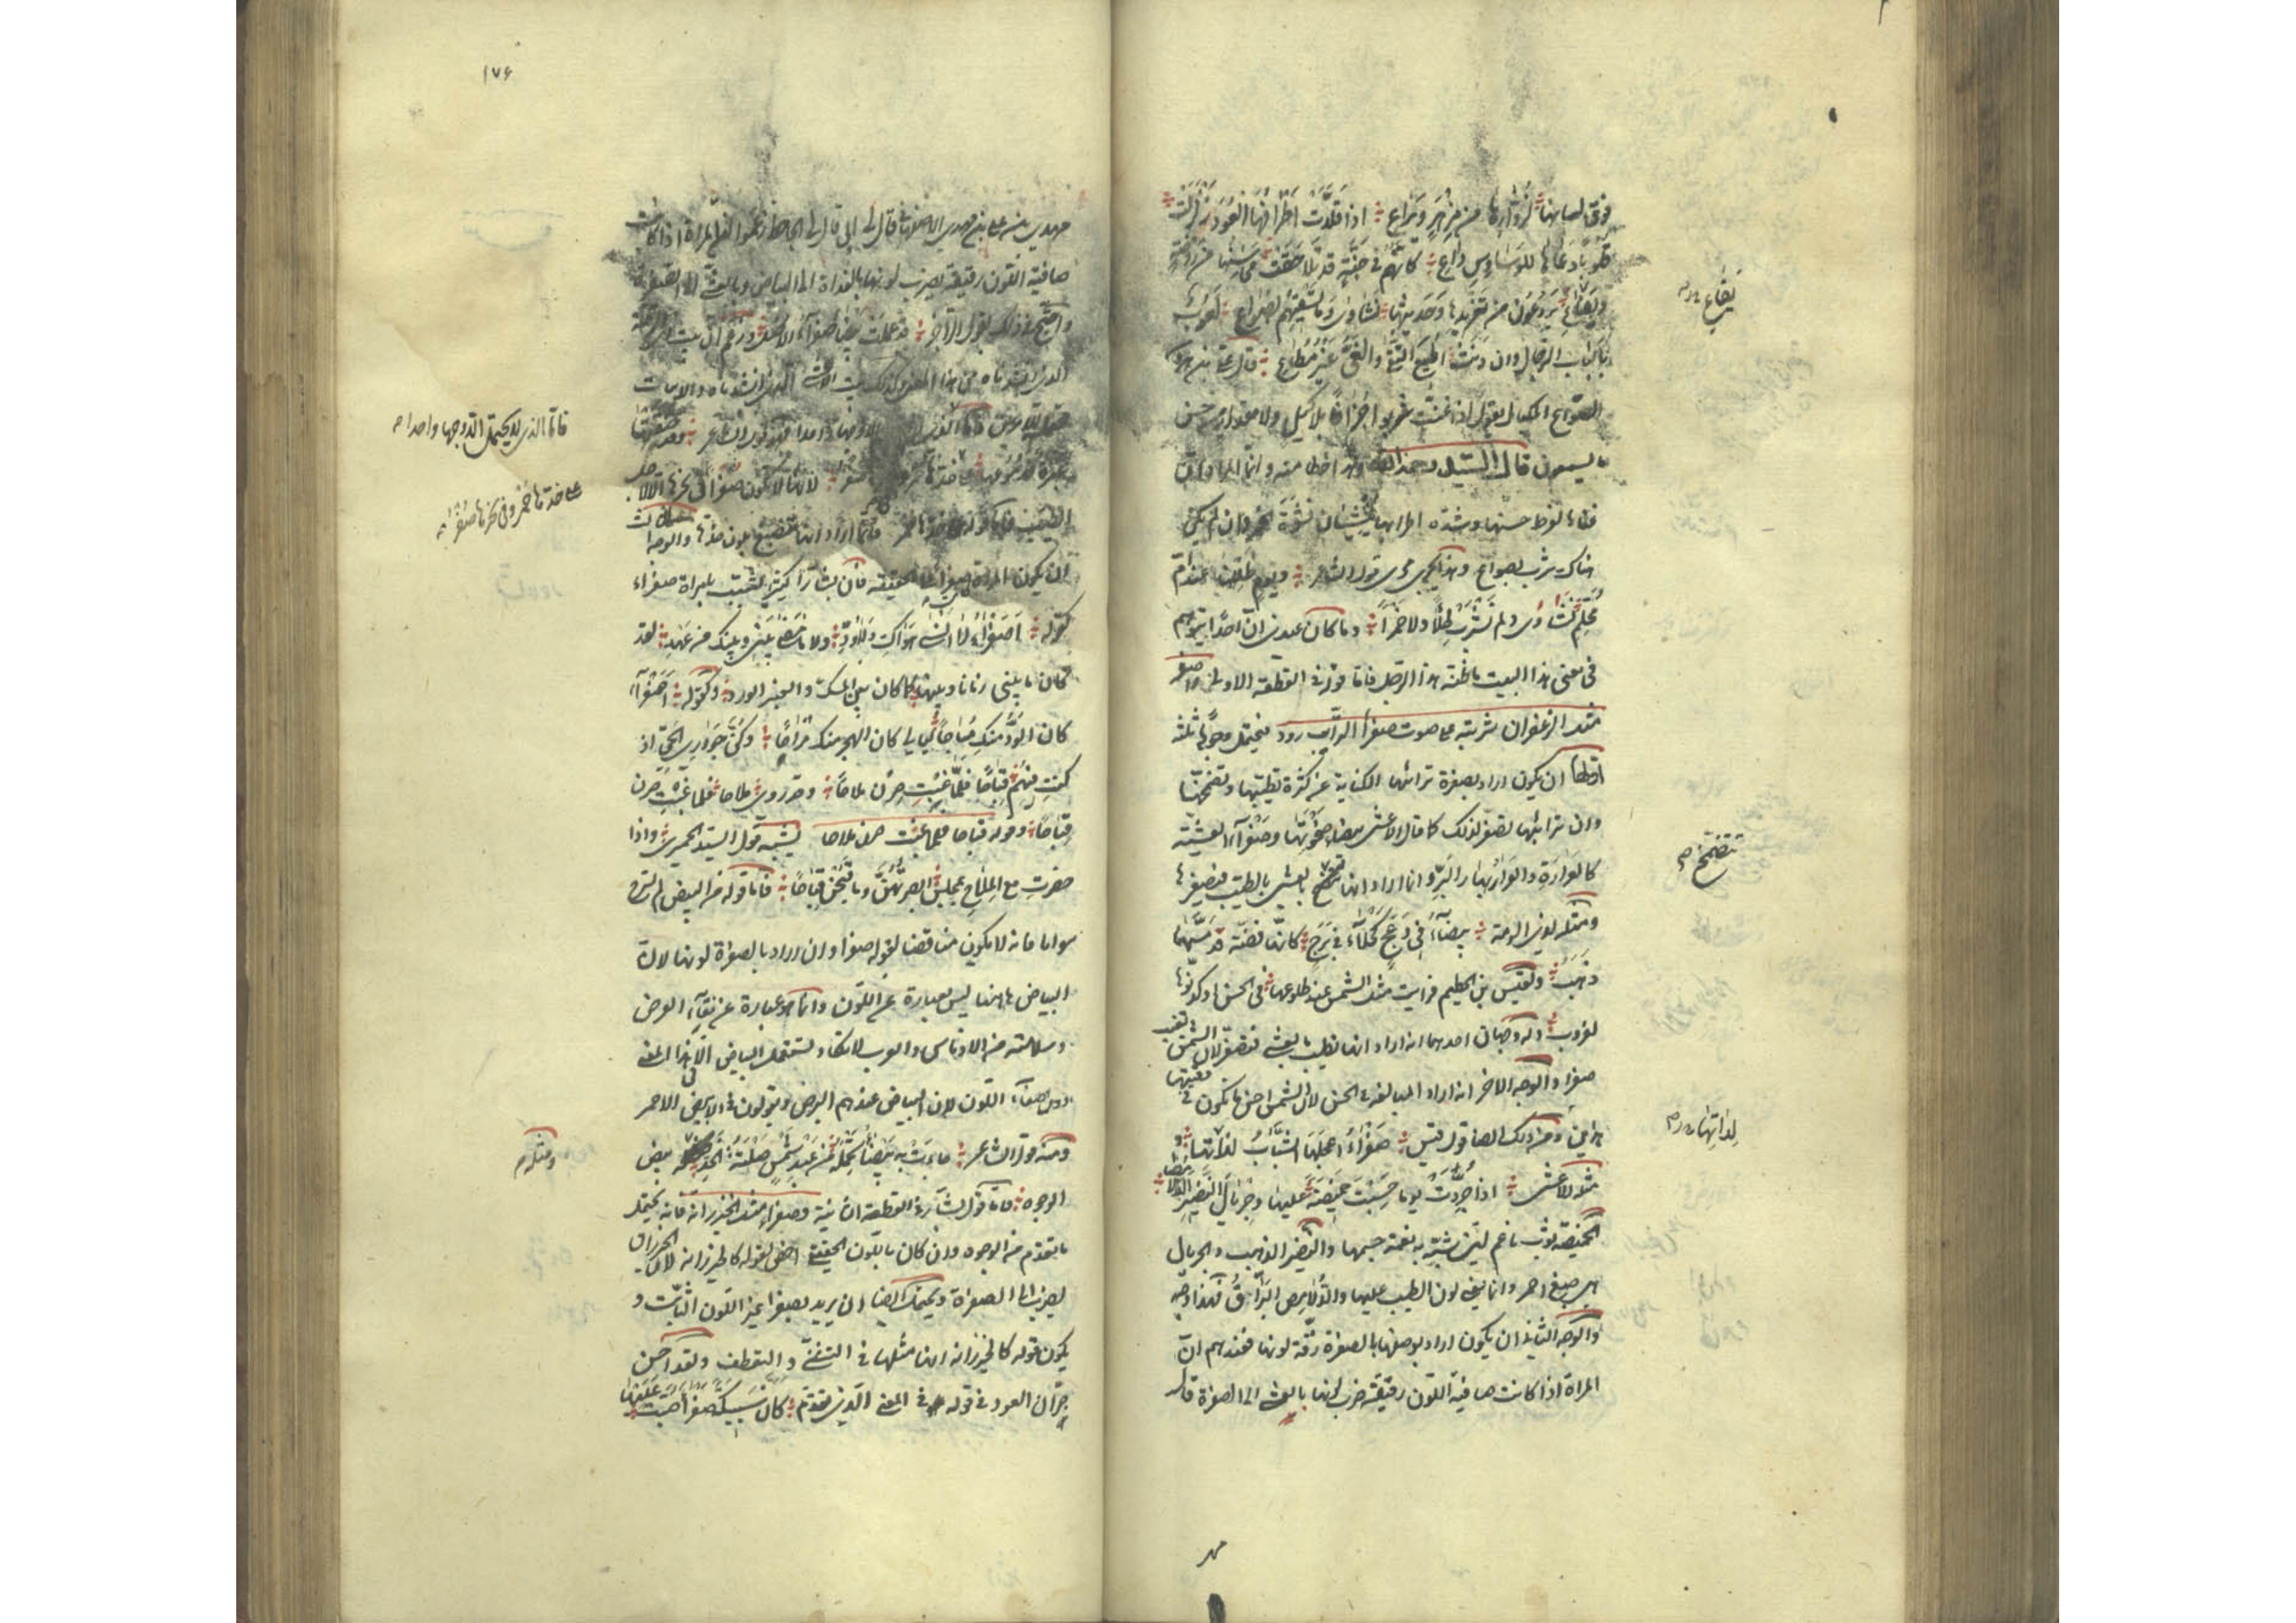 فوق لسانها لزوارها من مزهر ويراع اذا قلدت اطرافها العود زلزلت
قلوبا دعاها للوساوس داع كانهم في جنة قد تلاحقت محاسنها من روضة
ويفاع يروحون من تغريدها وحديثها نشاوى وما تسقيهم بصواع لعوب
بالباب الرجال وان دنت اطيع التقى والغي غير مطاع قال علي بن هرون
الصواع المكيال يقول اذا غنت شربوا جزافا بلا كيل ولا مقدار من حسن
ما يسمعون قال السيد رحمه الله وهذا خطا منه وانما المراد ان
غناها لفرط حسنه وشدة اطرابه ينشيان نشوة الخمر وان لم يكن
هناك شرب بصواع وهذا يجري مجرى قول الشاعر ويوم ظللنا عند ام
محلم نشاوى ولم نشرب طلاء ولا خمرا وما كان عندي ان احدا يتوهم
في معنى هذا البيت ما ظنه هذا الرجل فاما قوله في القطعة الاولى وصفر
مثل الزعفران شربته على صوت صفراء الترائب رود فيحتمل وجوها ثلثة
اولها ان يكون اراد بصفرة ترائبها الكناية عن كثرة تطيبها وتضمخها
وان ترائبها تصفر لذلك كما قال الاعشى بيضاء ضحوتها وصفراء العشية
كالعرارة والعرار بهار البر وانما اراد انها تتضمخ بالعشي بالطيب فيصفرها
ومثله لذي الرمة بيضاء في دعج كحلاء في برج كانها فضة قد مسها
ذهب ولقيس بن الخطيم فرايت مثل الشمس عند طلوعها في الحسن او كدنوها
لغروب وله وجهان احدهما انه اراد انها تطيب بالعشي فتصفر لان الشمس تغيب
صفراء والوجه الاخر انه اراد المبالغة في الحسن لان الشمس احسن ما تكون في
هذين ومن ذلك ايضا قول قيس صفراء اعجلها الشباب لداتها
مثله للاعشى اذا جردت يوما حسبت خميصة عليها وجريال النضير الدلامصا
الخميصة ثوب ناعم لين شبه به نعمة جسمها والنضير الذهب والجريال
هي صبغ احمر وانما يعني لون الطيب عليها والدلامص البراق فهذا وجه
والوجه الثاني ان يكون اراد بوصفها بالصفرة رقة لونها فعندهم ان
المراة اذا كانت صافية اللون رقيقة ضرب لونها بالعشي الى الصفرة قال
يفاع
تتضمخ
لداتها
١٧۶
مهدي بن علي بن مهدي الاصفهاني قال لي ابي قال لي الجاحظ زعموا ان المراة اذا كانت
صافية اللون رقيقة يضرب لونها بالغداة الى البياض وبالعشي الى الصفرة
واحتج في ذلك بقول الراجز قد علمت بيضاء صفراء الاصل وزعم ان بيت ذي الرمة
الذي انشدناه من هذا المعنى وكذلك بيت الاعشى الذي انشدناه والابيات
على خدها خمر وفي نحرها صفر لانها لا تكون صفراء في نحرها الا لاجل
الطيب فاما قوله على خدها خمر فانما اراد انها تتضمخ بلون خدها والوجه الثالث
ان تكون المراة صفراء على الحقيقة فان بشارا كثيرا يشبب بامراة صفراء
كقوله اصفراء لا انسى هواك ولا ودي ولا ما مضى بيني وبينك من عهد لقد
كان ما بيني زمانا وبينها كما كان بين المسك والعنبر الورد وكقوله اصفراء
كان الود منك مباحا ليالي كان الهجر منك مزاحا وكن جواري الحي اذ
كنت فيهم قباحا فلما غبت صرن ملاحا وقد روي ملاحا فلما غبت صرن
قباحا وقوله قباحا فلما غبت صرن ملاحا يشبه قول السيد الحميري واذا
حضرت مع الملاح بمجلس ابصرتهن وما قبحن قباحا فاما قوله من البيض لم تسرح
سواما فانه لا يكون مناقضا لقوله صفراء وان اراد بالصفرة لونها لان
البياض هاهنا ليس بعبارة عن اللون وانما هو عبارة عن نقاء العرض
وسلامته من الادناس والعرب لا تكاد تستعمل البياض الا في هذا المعنى
دون صفاء اللون لان البياض عندهم البرص ويقولون في الابيض الاحمر
ومنه قول الشاعر جاءت به بيضاء تحمله من عبد شمس صلتة الخد بيض
الوجوه فاما قول بشار في القطعة الثانية وصفراء مثل الخيزرانة فانه يحتمل
ما تقدم من الوجوه وان كان باللون الحقيقي اخص لقوله كالخيزرانة لان الخيزران
يضرب الى الصفرة ويحتمل ايضا ان يريد بصفراء غير اللون الثابت و
يكون قوله كالخيزرانة انها مثلها في التثني والتعطف ولقد احسن
جران العود في قوله في المعنى الذي تقدم كان سبيكة صفراء صبت عليها
فاما الذي لا يحتمل الا وجها واحدا
على خدها خمر وفي نحرها صفر
ومثله